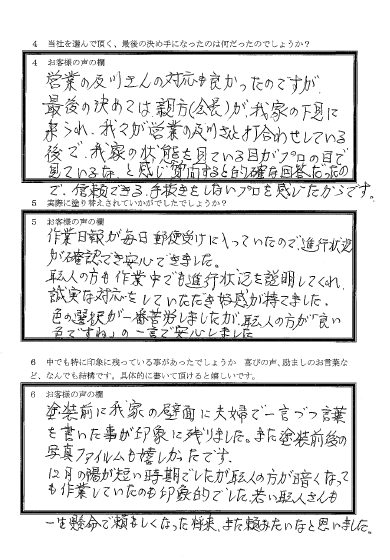 4 当社を選んで頂く、最後の決め手になったのは何だったのでしょうか?
4 お客様の声の欄
営業の及川さんの対応も良かったのですが
最後の決めては親方(会長)が、我家の下見に
来られ、我々が営業の及川さんと打合わせしている
後で、我家の状態を見ている目がプロの目で
見ているな、と感じ質問すると的確な回答だったの
で、信頼できる、手抜きをしないプロを感じたからです。
5 実際に塗り替えされていかがでしたでしょうか?
5 お客様の声の欄
作業日報が毎日郵便受けに入っていたので、進行状況
が確認でき安心できました。
職人の方も作業中でも進行状況を説明してくれ、
誠実な対応をしていただき好感が持てました。
色の選択が一番苦労しましたが、職人の方が「良い
色ですね」の一言で安心しました
6 中でも特に印象に残っている事があったでしょうか 喜びの声、励ましのお言葉な
ど、なんでも結構です。具体的に書いて頂けると嬉しいです。
6 お客様の声の欄
塗装前に我家の壁面に夫婦で一言づつ言葉
を書いた事が印象に残りました。また塗装前後の
写真ファイルも嬉しかったです。
12月の陽が短い時期でしたが職人の方が暗くなって
も作業していたのも印象的でした。若い職人さんも
一生懸命で頼もしくなった将来、また頼みたいなと思いました。